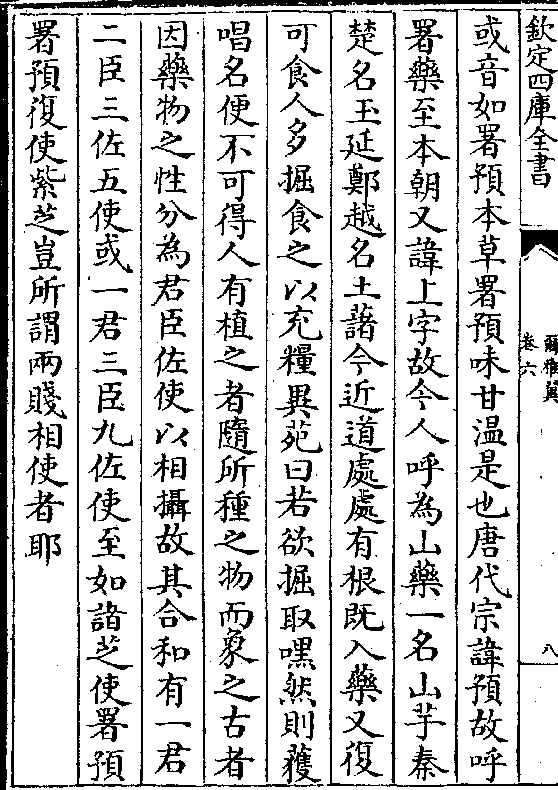 欽定四庫全書
爾雅翼
卷六
八
或音如署預本草署預味甘温是也唐代宗諱預故呼
署藥至本朝又諱上字故今人呼為山藥一名山芋秦
楚名玉延鄭越名土藷今近道處處有根既入藥又復
可食人多掘食之以充糧異苑曰若欲掘取嘿然則獲
唱名便不可得人有植之者隨所種之物而象之古者
因藥物之性分為君臣佐使以相攝故其合和有一君
二臣三佐五使或一君三臣九佐使至如諸芝使署預
署預復使紫芝豈所謂兩賤相使者耶